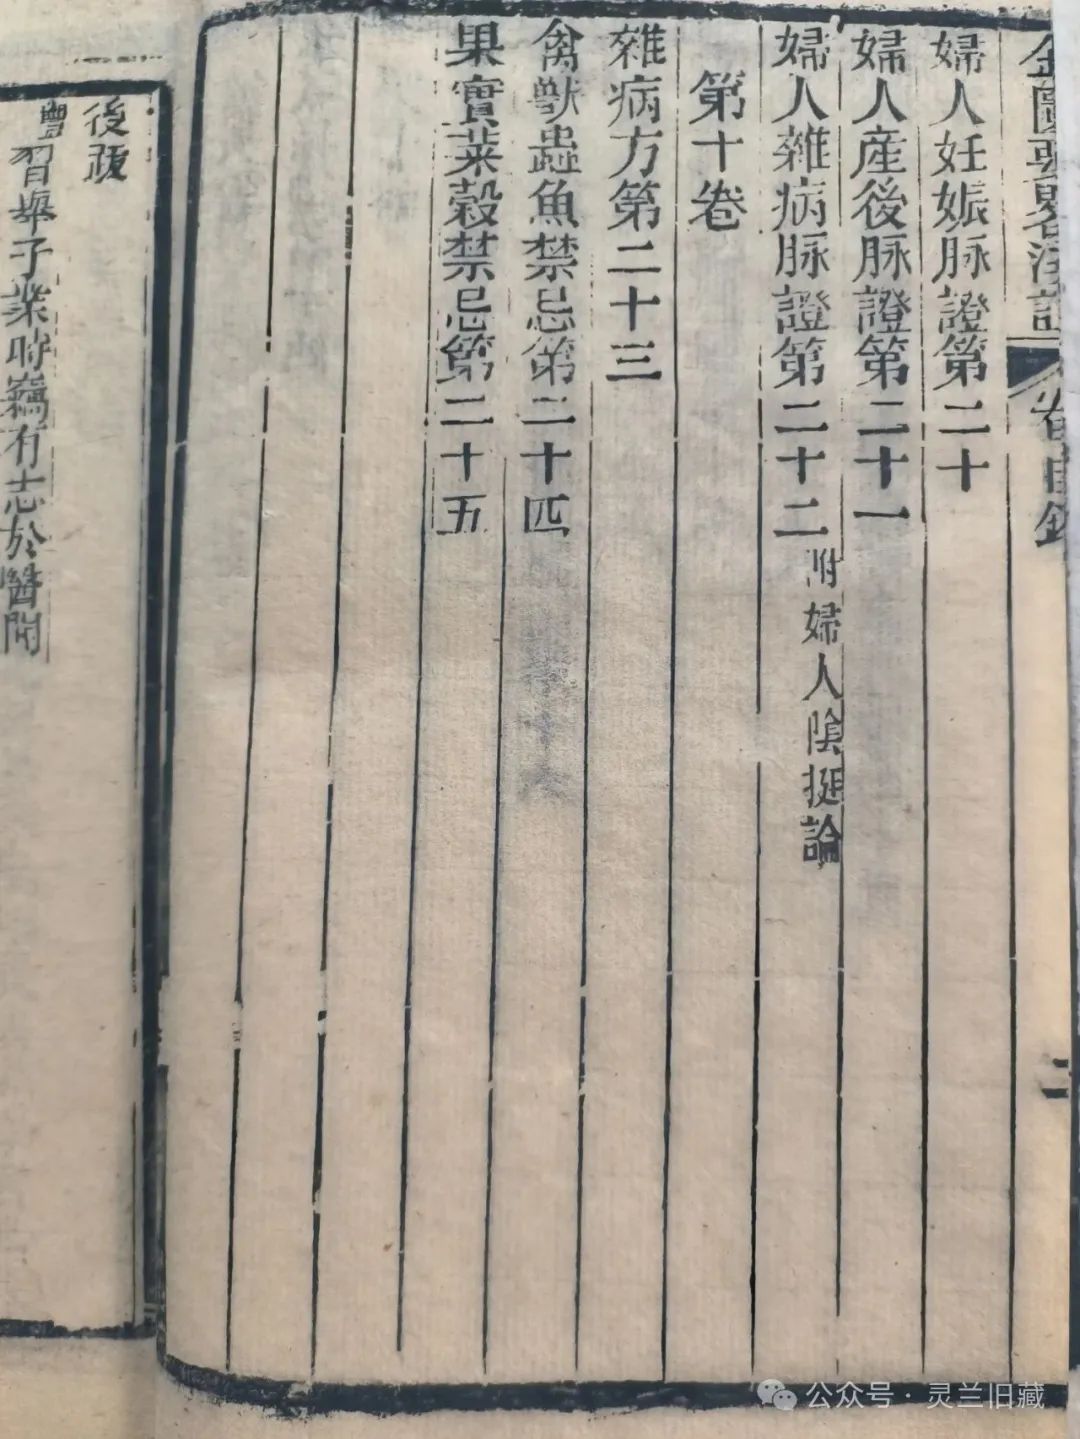 金匱要畧淺註 首目錄 二
婦人妊娠脉證第二十
婦人產後脉證第二十一
婦人雜病脉證第二十二 附婦人陰挺論
第十卷
雜病方第二十三
禽獸蟲魚禁忌第二十四
果實菜穀禁忌第二十五
後跋
豐習舉子業時竊有志於醫
公众号·灵兰旧藏